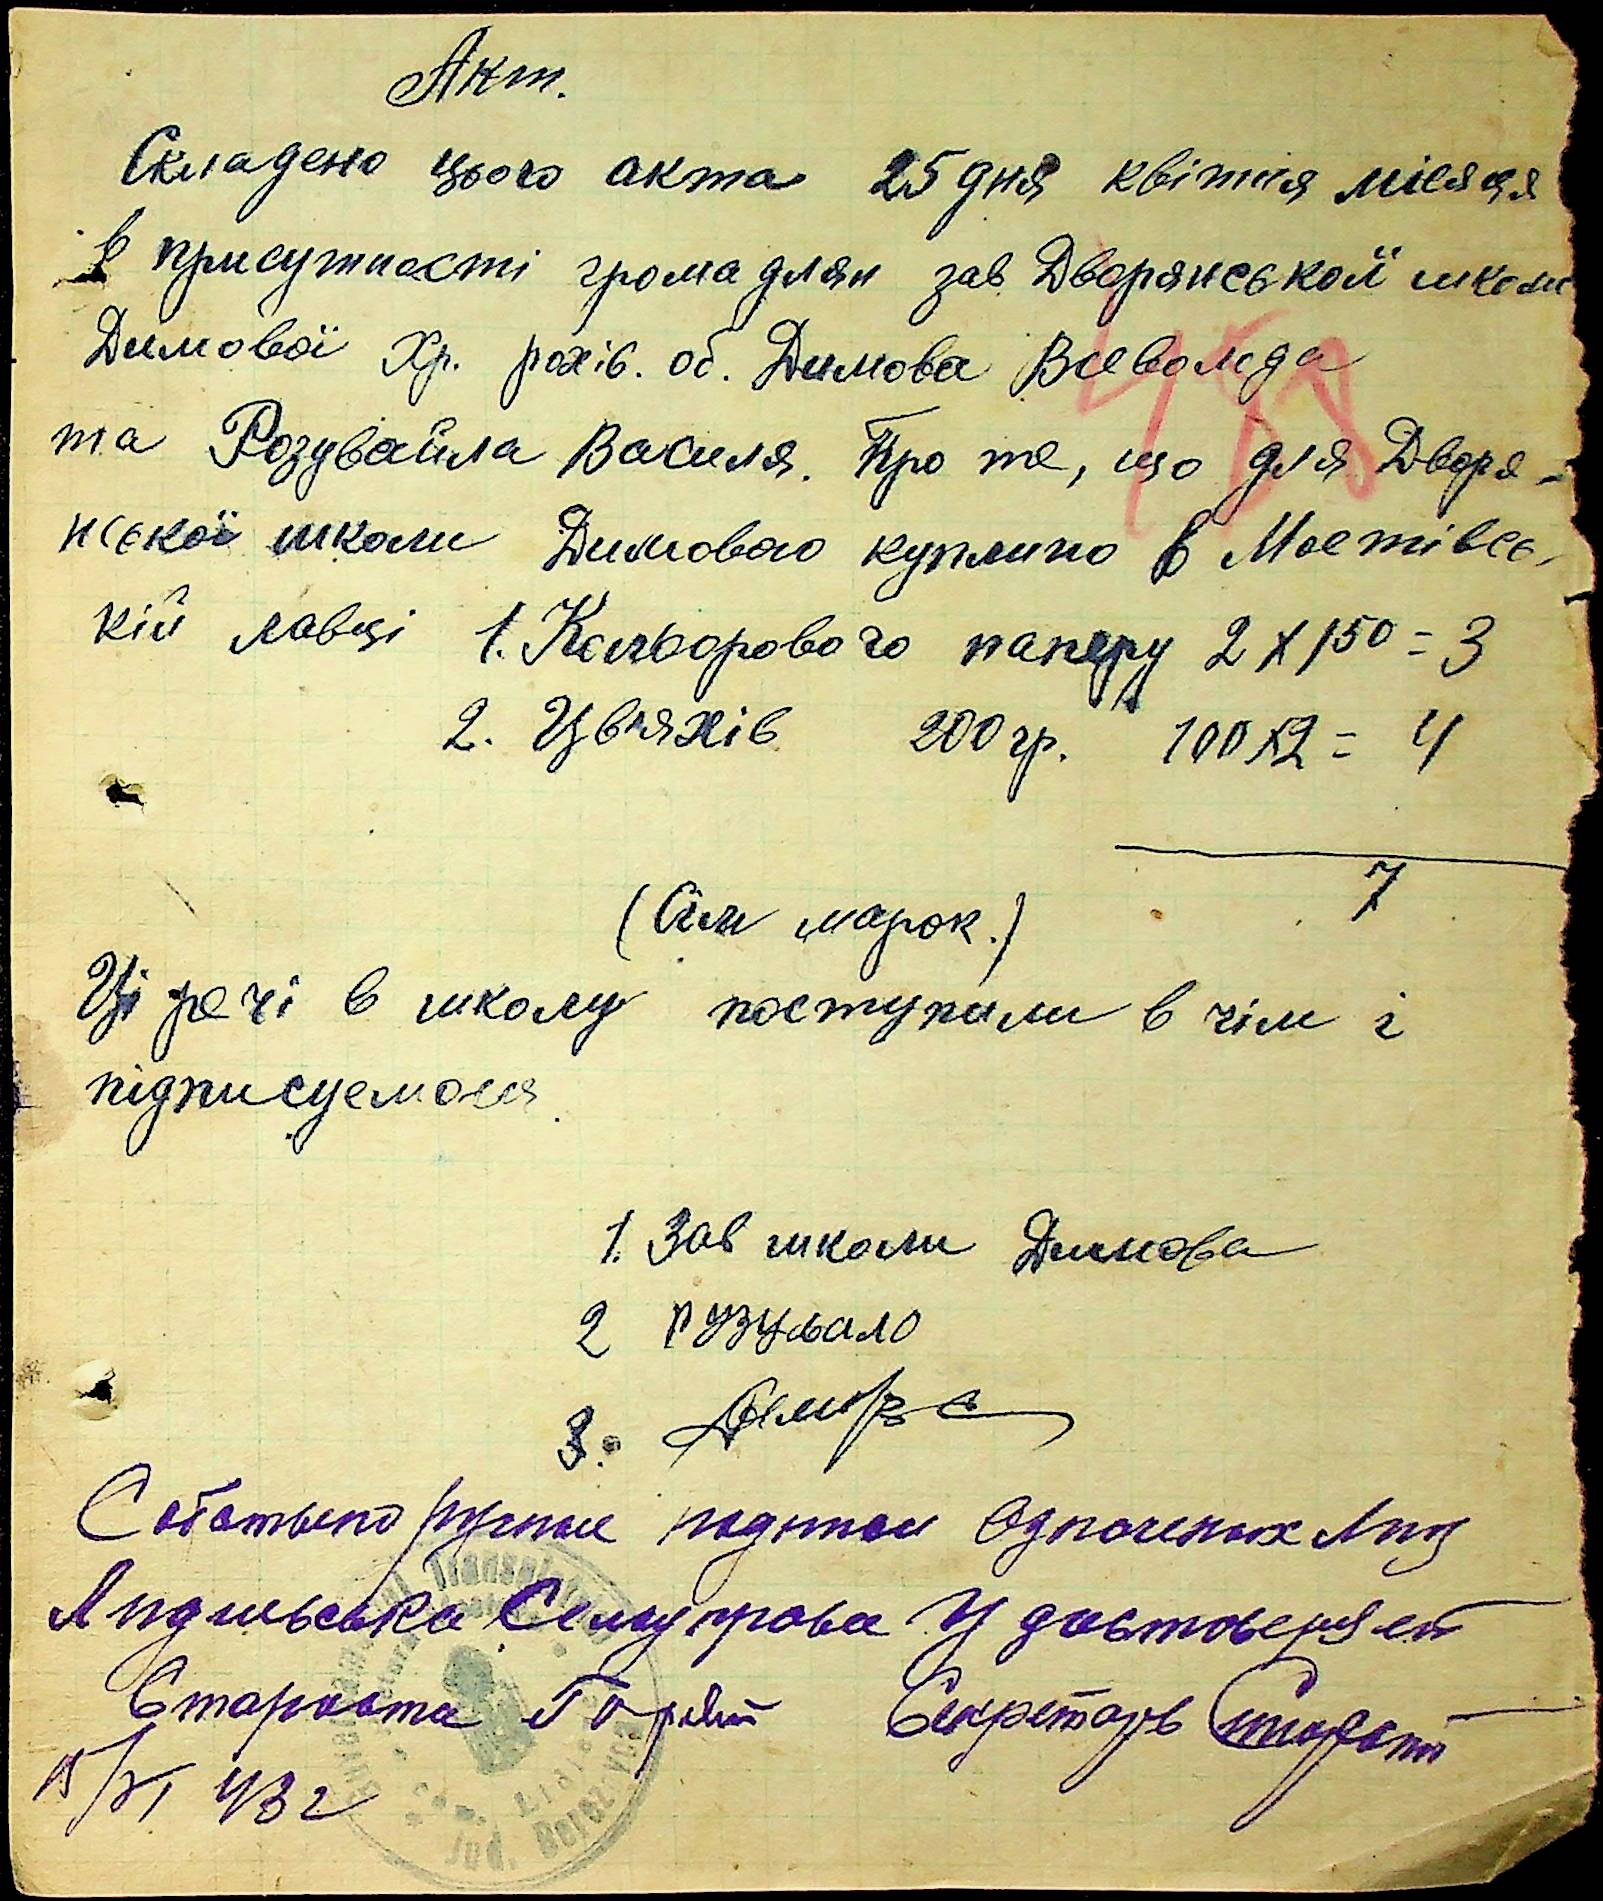 Акт.
Складено цього акта 25 дня квітня місяця
в присутности громадян зав Дворянської школи
Димової Хр. рахів. об. Димова Всеволода
та Розувайла Василя. Про те, що для Дворя-
нської школи Димовою куплино в Мостівсь-
кій лавці 1. Кольорового паперу 2 х 150 = 3
2. Цвяхів 200 гр. 100 х 2 = 4
7
(Сім марок.)
Ці речі в школу поступили в чім і
підписуемося.
1. Зав школи Димова
2 розувало
3. Димов
Собствено ручные подписи лиц
Удостоверяет
Староста Секретарь
43 г